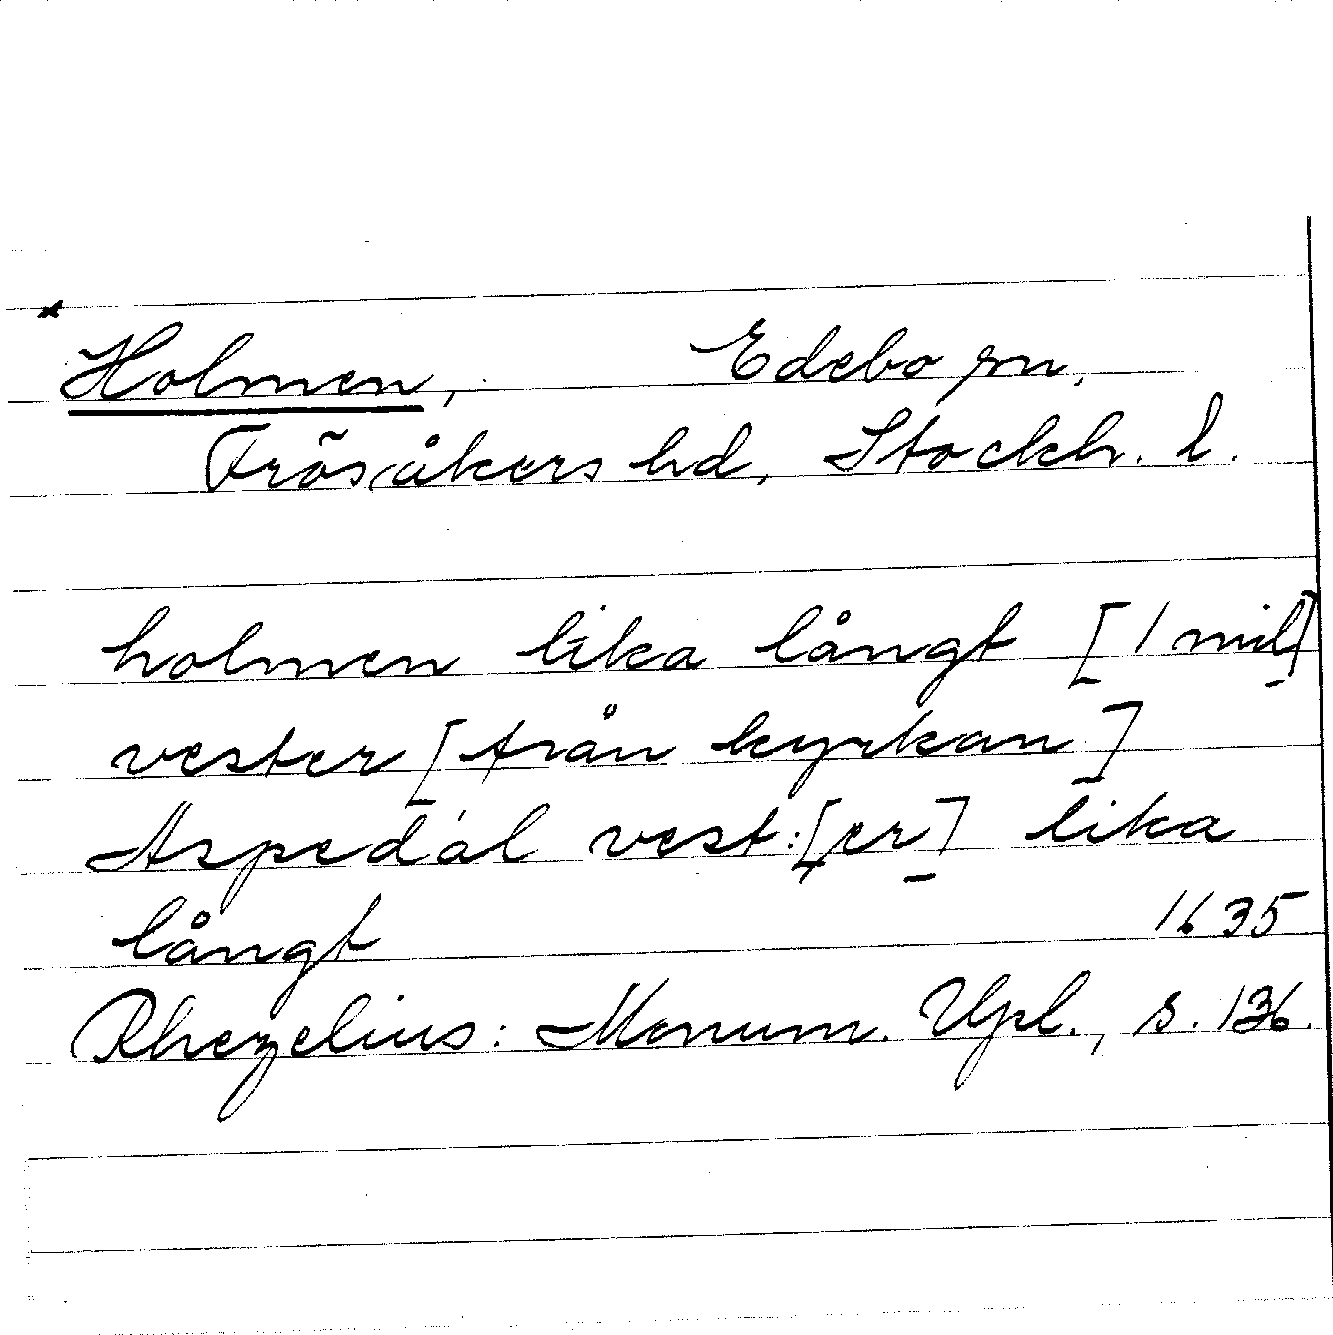 Holmen, Edebo sn,
Frösåkers hd, Stockh. l.
holmen lika långt [1 mil]
vester [från kyrkan]
Aspedál vest:[er] lika
långt 1635
Rhezelius: Monum. Upl., s. 136.